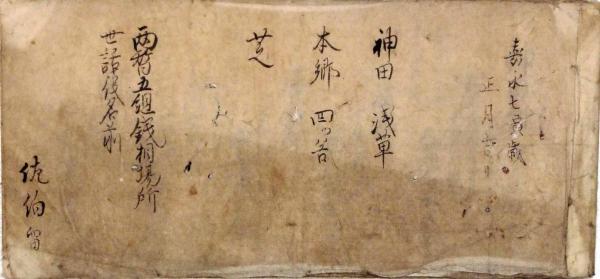 嘉永七寅歳
正月吉日
神田 浅草
本郷 四ツ谷
芝
両替五組銭相場所
世話役名前
佐伯留